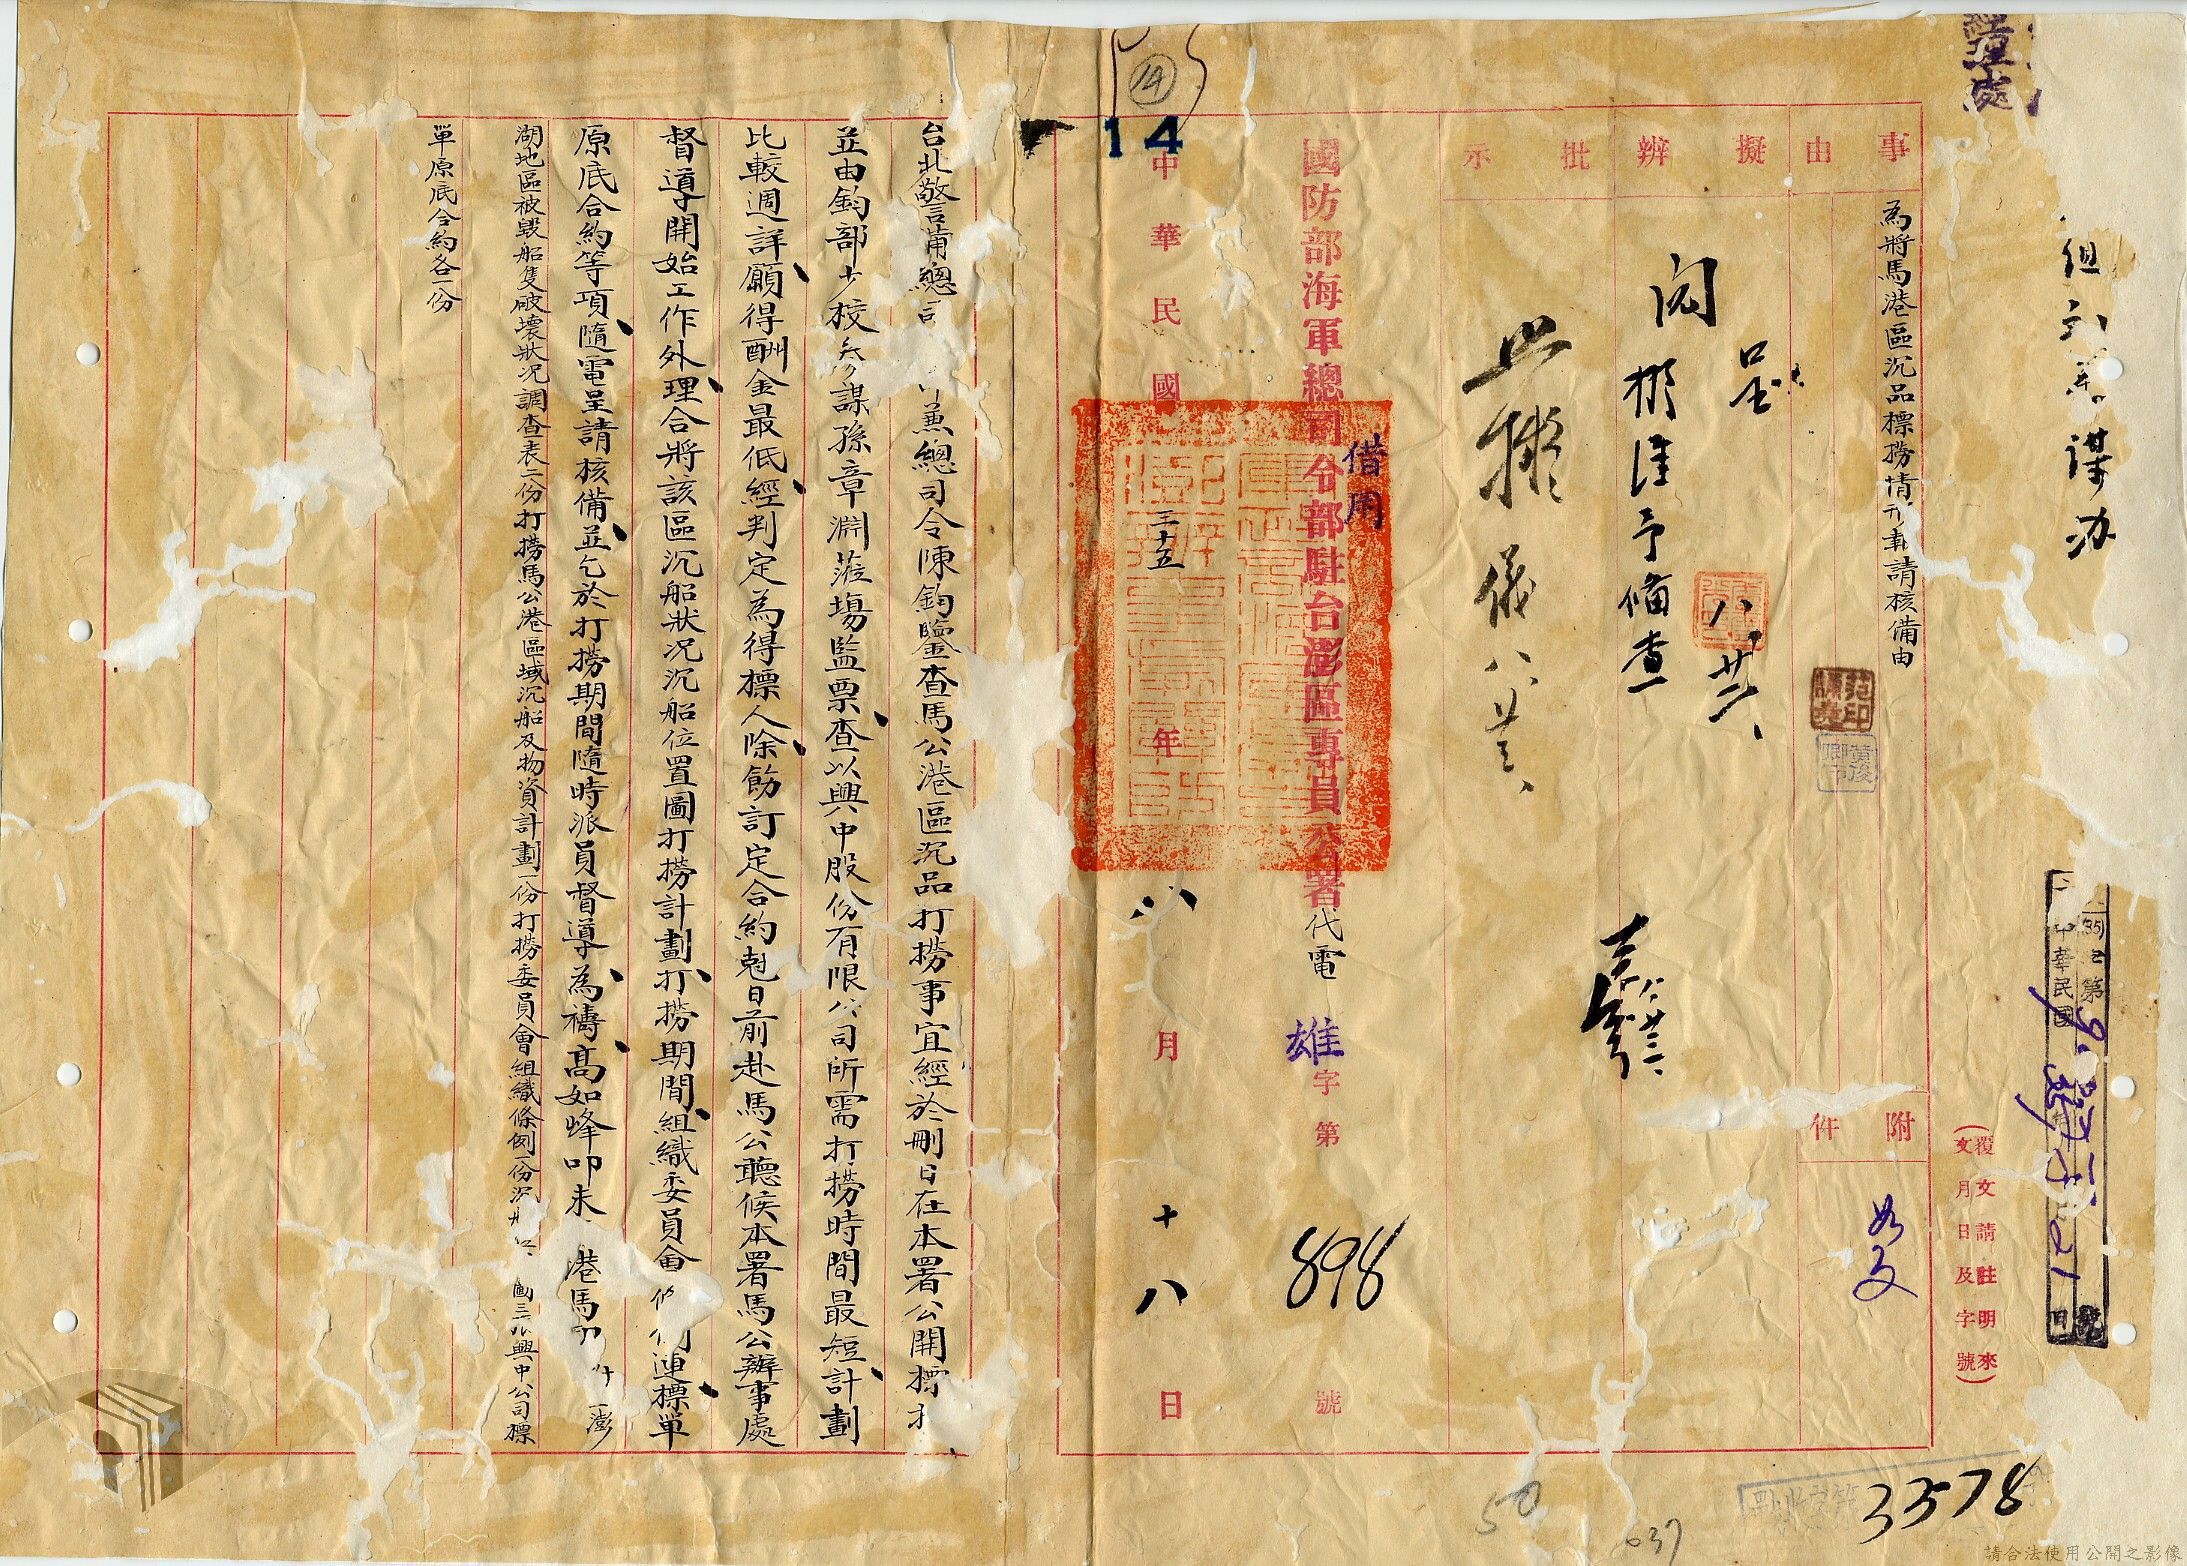 經理處
事由
擬辦
批示
為將馬港區沉品標撈情形報請核備由
呈
閱
擬准予備查
八
如擬
儀
附件
如文
(覆文請註明來文月日及字號)
中華民國
第
號
日
范印
黃俊卿印
國防部海軍總司令部駐台澎區專員公署代電
借用
雄字第898號
中華民國三十五年八月十八日
14
14
台北警備總司令兼總司令陳鈞鑒查馬公港區沉品打撈事宜經於刪日在本署公開標
並由鈞部少校參謀孫章淵蒞場監票查以興中股份有限公司所需打撈時間最短計劃
比較週詳願得酬金最低經判定為得標人除飭訂定合約尅日前赴馬公聽候本署馬公辦事處
督導開始工作外理合將該區沉船狀況沉船位置圖打撈計劃打撈期間組織委員會連標單
原底合約等項隨電呈請核備並乞於打撈期間隨時派員督導為禱高如峰叩未港馬印
澎
湖地區被毀船隻破壞狀況調查表二份打撈馬公港區域沉船及物資計劃一份打撈委員會組織條例一份沉圖三張興中公司標
單原底合約各一份
3578
50
037
請合法使用公開之影像